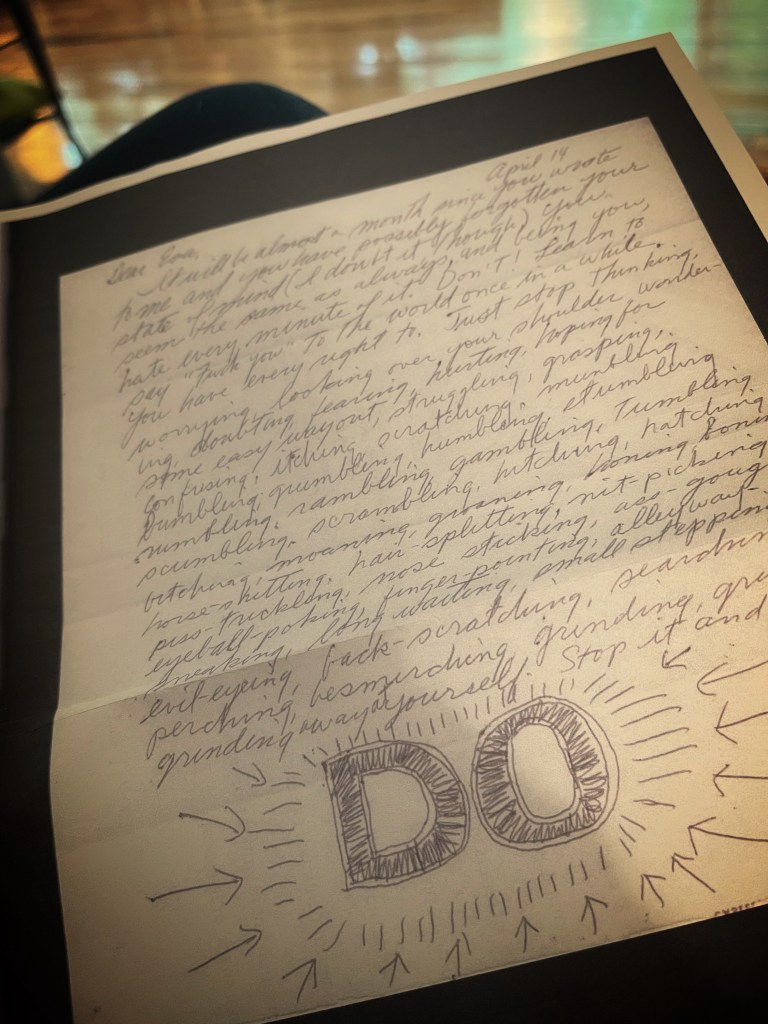 April 14
Dear Eva,
It will be almost a month since you wrote
to me and you have possibly forgotten your
state of mind (I doubt it though). You
seem the same as always, and being you,
hate every minute of it. Don't! Learn to
say "Fuck You" to the world once in a while.
You have every right to. Just stop thinking,
worrying, looking over your shoulder wonder-
ing, doubting, fearing, hurting, hoping for
some easy way out, struggling, grasping,
confusing, itching, scratching, mumbling
bumbling, grumbling, humbling, stumbling
numbling, rambling, gambling, tumbling
scumbling, scrambling, hitching, hatching
bitching, moaning, groaning, honing, bonin
horse-shitting, hair-splitting, nit-picking
piss-trickling, nose sticking, ass-goug
eyeball-poking, finger-pointing, alleyway-
sneaking, long waiting, small steppin
evil-eyeing, back-scratching, searchin
perching, besmirching, grinding, gri
grinding away at yourself. Stop it and
DO